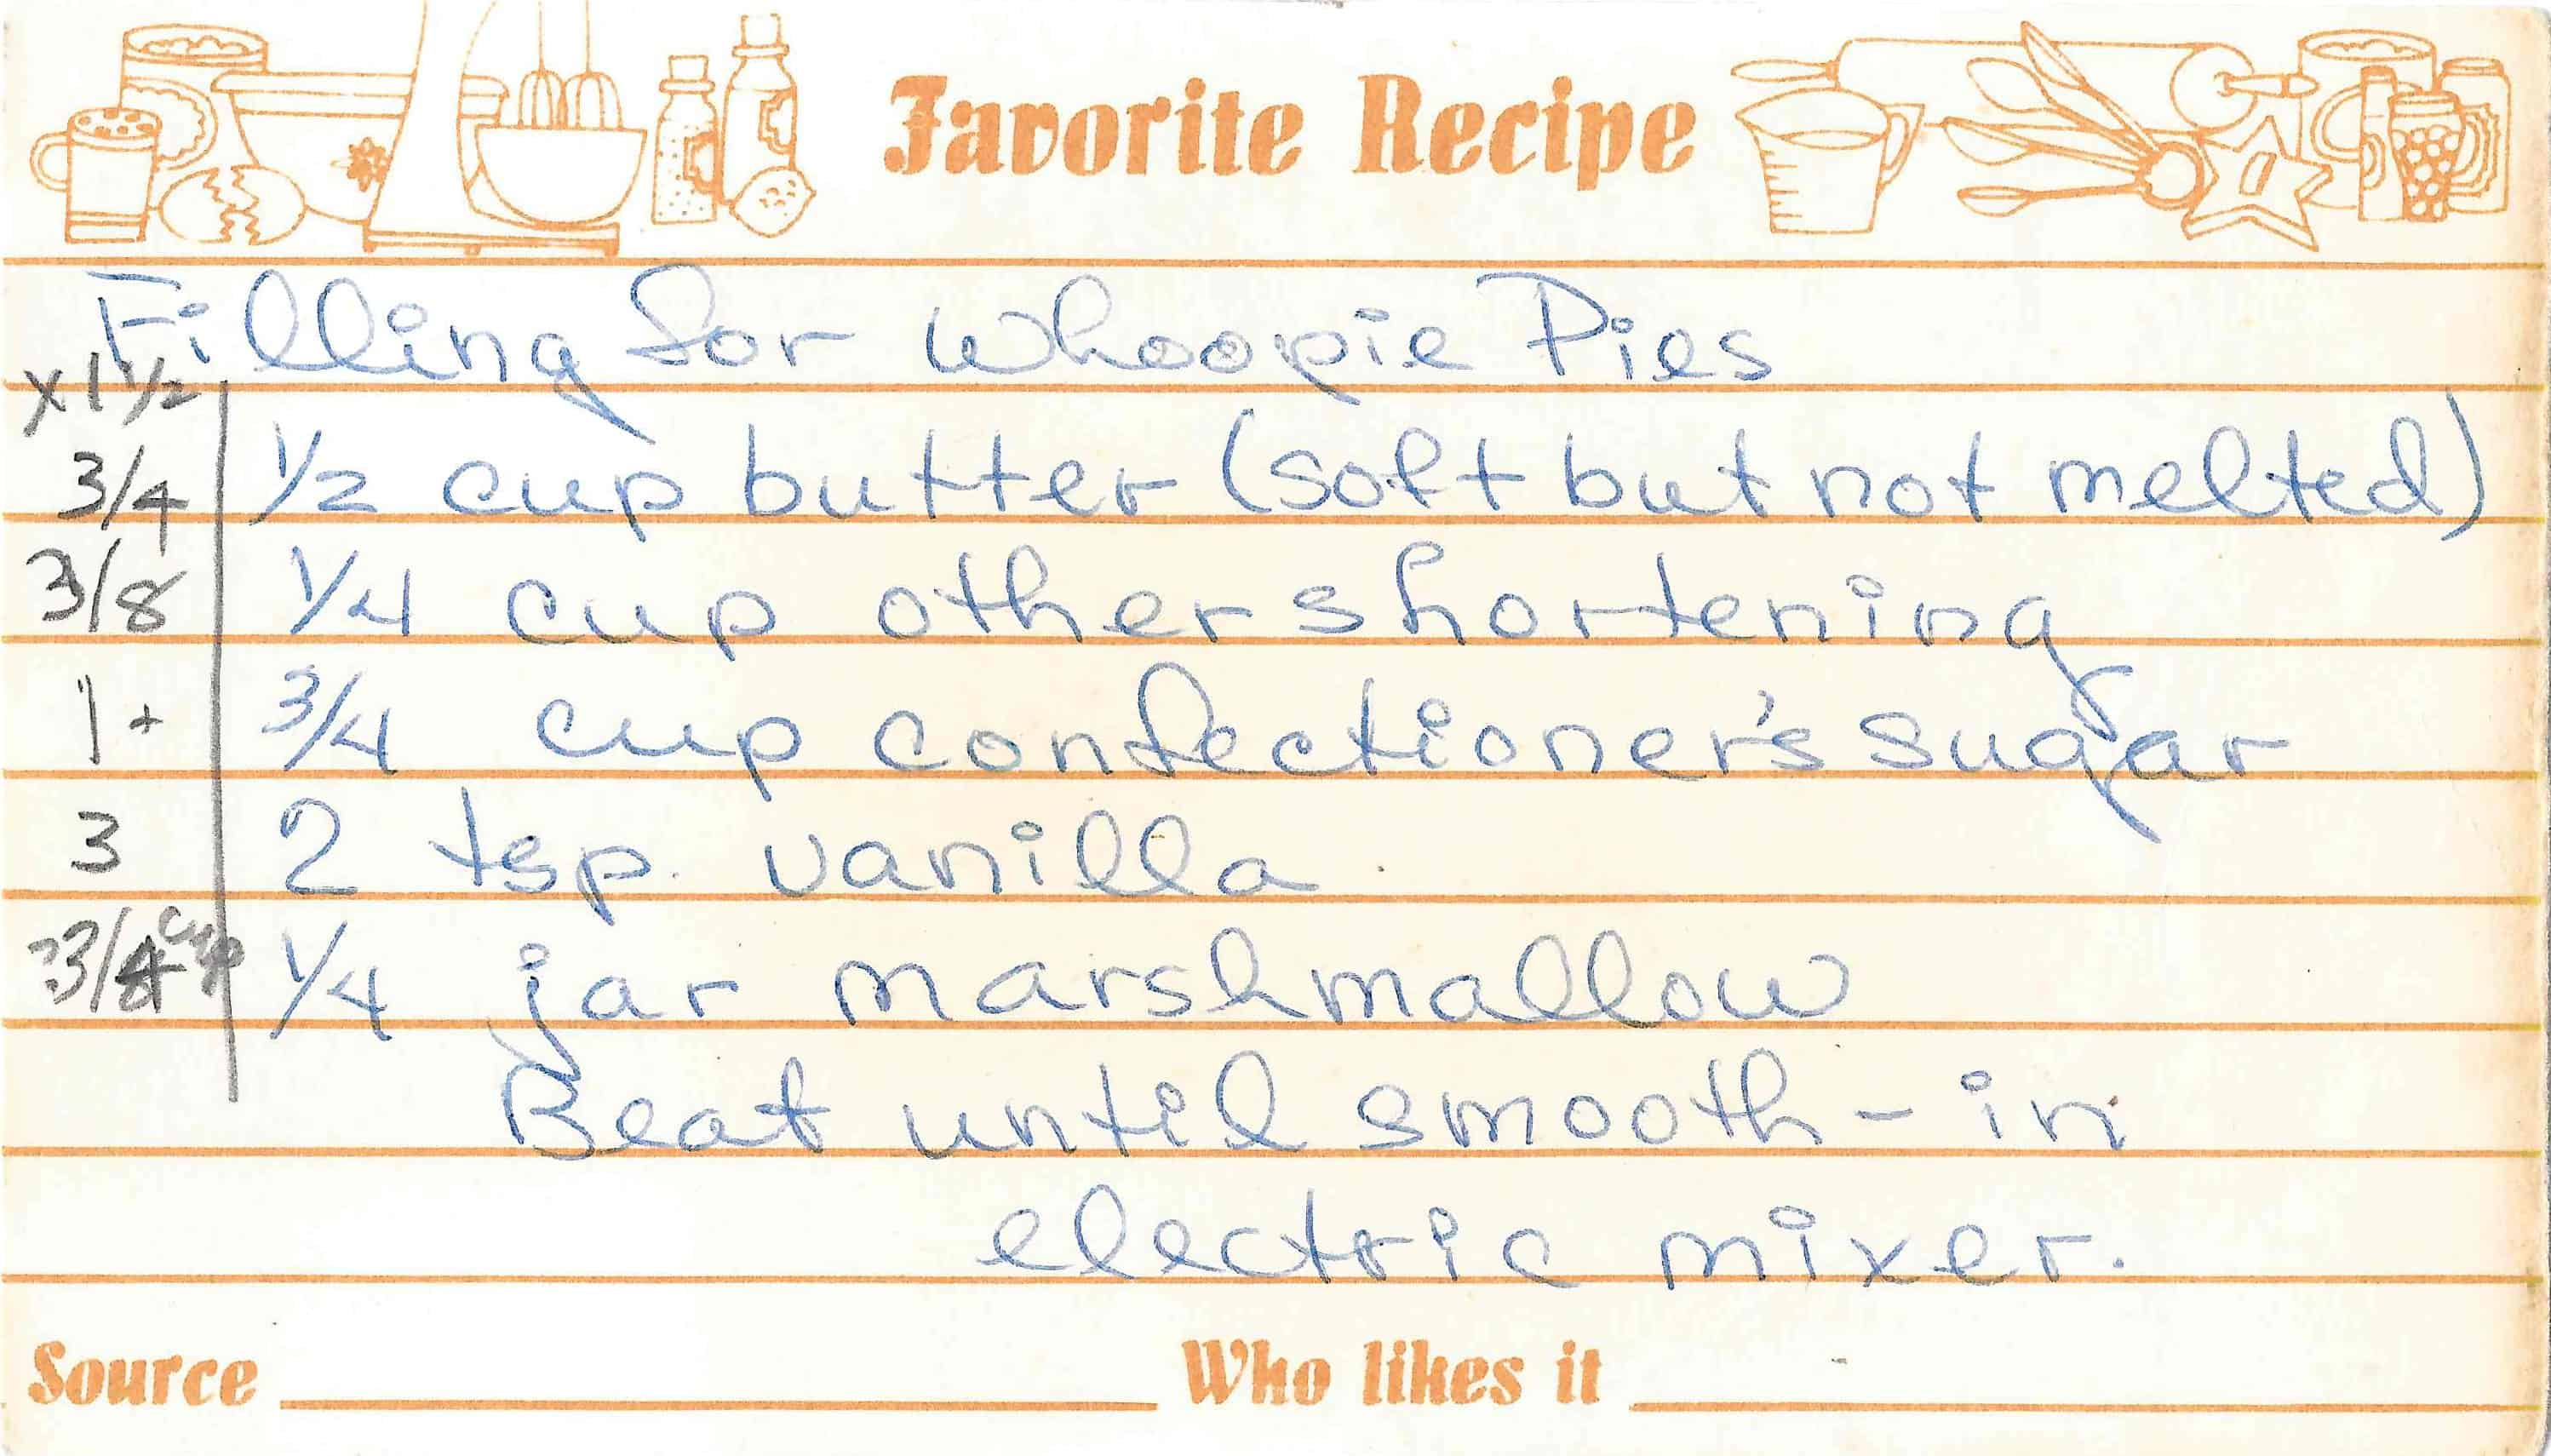 Favorite Recipe
Filling for Whoopie Pies
x 1 1/2
3/4 1/2 cup butter (soft but not melted)
3/8 1/4 cup other shortening
1+ 3/4 cup confectioner's sugar
3 2 tsp. vanilla
cup 1/4 jar marshmallow
Beat until smooth - in
electric mixer.
Source Who likes it